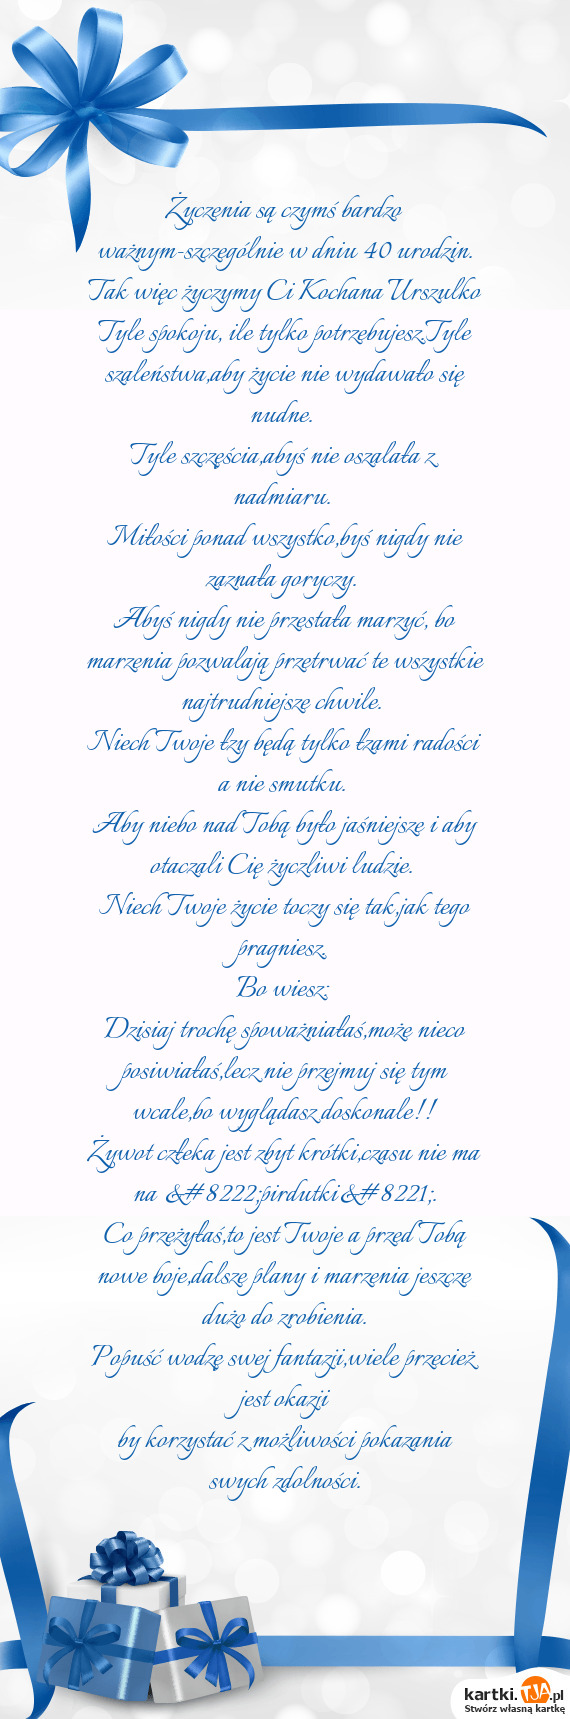 Życzenia są czymś bardzo
ważnym-szczególnie w dniu 40 urodzin.
Tak więc życzymy Ci Kochana Urszulko
Tyle spokoju, ile tylko potrzebujesz.Tyle
szaleństwa,aby życie nie wydawało się
nudne.
Tyle szczęścia,abyś nie oszalała z
nadmiaru.
Miłości ponad wszystko,byś nigdy nie
zaznała goryczy.
Abyś nigdy nie przestała marzyć, bo
marzenia pozwalają przetrwać te wszystkie
najtrudniejsze chwile.
Niech Twoje łzy będą tylko łzami radości
a nie smutku.
Aby niebo nad Tobą było jaśniejsze i aby
otaczali Cię życzliwi ludzie.
Niech Twoje życie toczy się tak,jak tego
pragniesz.
Bo wiesz:
Dzisiaj trochę spoważniałaś,może nieco
posiwiałaś,lecz nie przejmuj się tym
wcale,bo wyglądasz doskonale!!
Żywot człeka jest zbyt krótki,czasu nie ma
na &#8222;pirdutki&#8221;.
Co przeżyłaś,to jest Twoje a przed Tobą
nowe boje,dalsze plany i marzenia jeszcze
dużo do zrobienia.
Popuść wodzę swej fantazji,wiele przecież
jest okazji
by korzystać z możliwości pokazania
swych zdolności.
kartki.TJA.pl
Stwórz własną kartkę